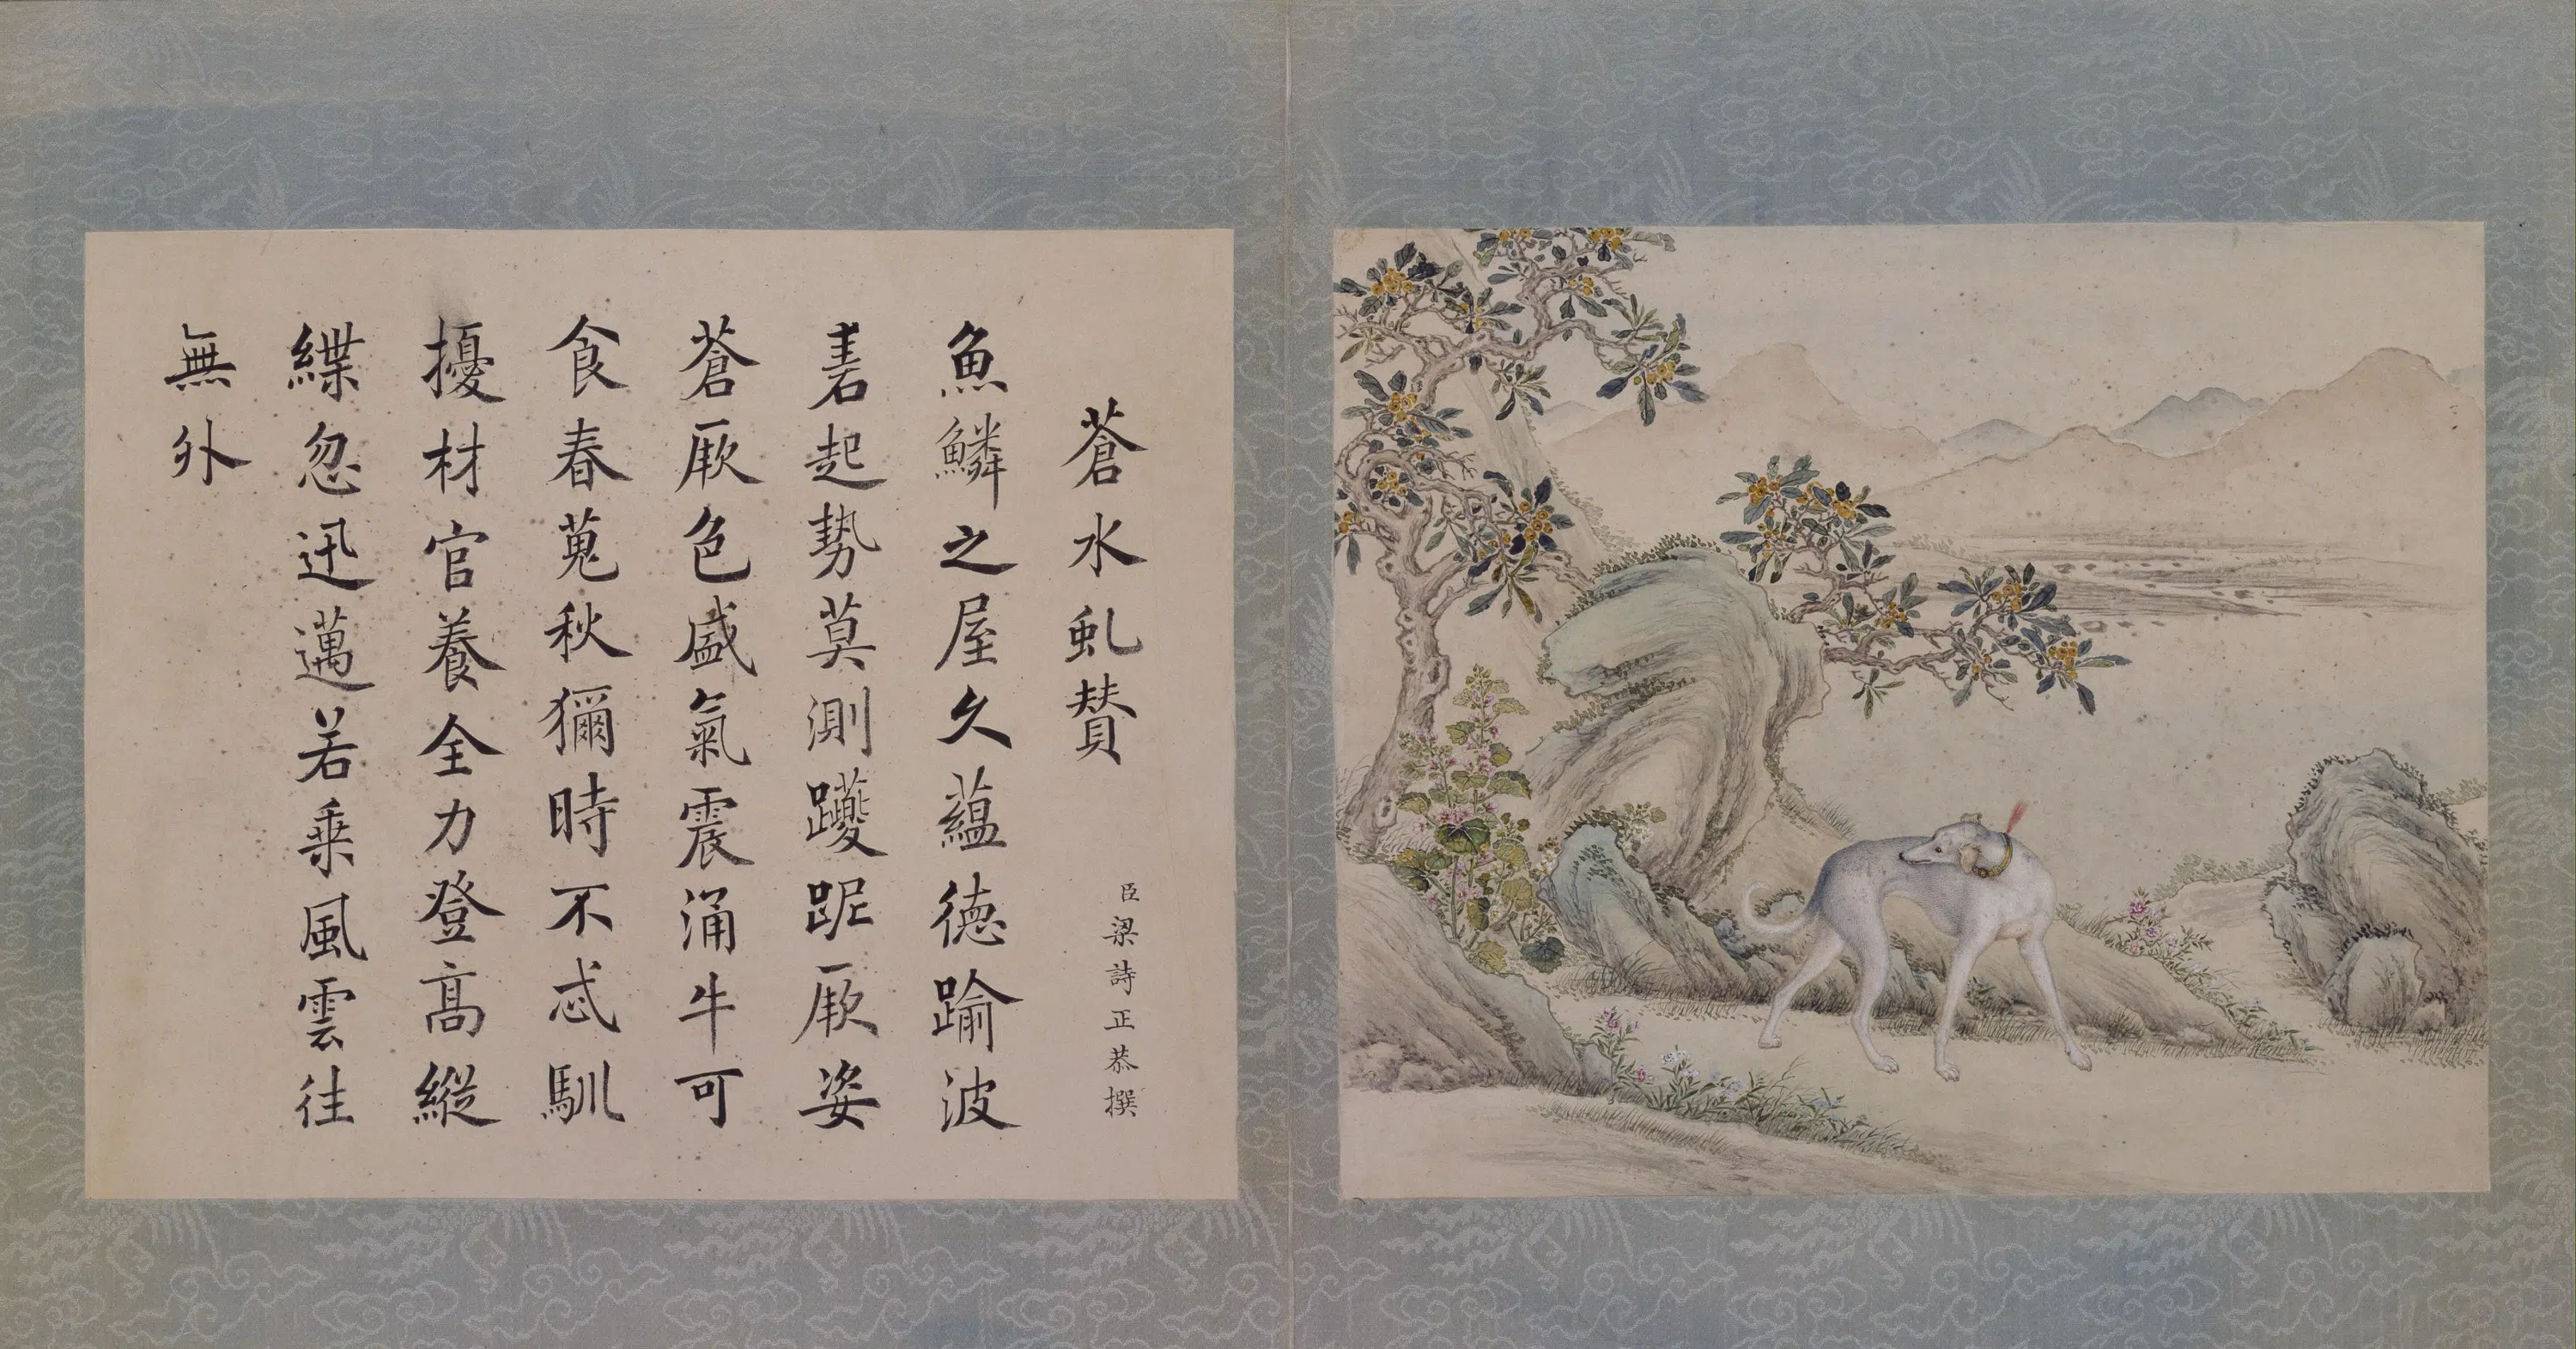 蒼水虬賛
臣梁詩正恭撰
魚鱗之屋久蘊德踰波
砉起勢莫測躨跜厥姿
蒼厥色盛氣震涌牛可
食春蒐秋獮時不忒馴
擾材官養全力登高縱
緤忽迅邁若乘風雲往
無外